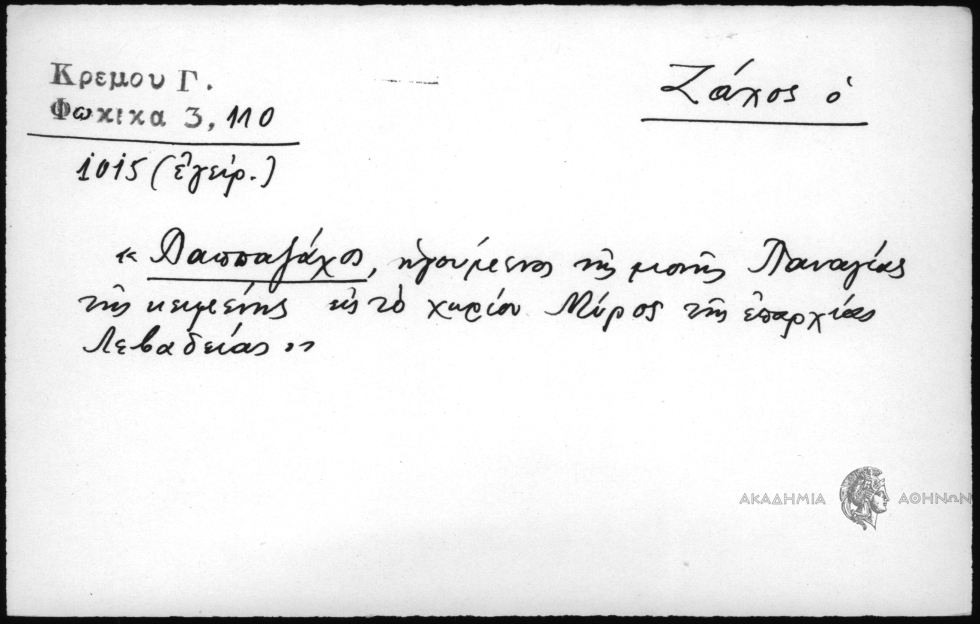 Κρεμου Γ.
Φωκικα 3, 110
Ζάχος ὁ
1015 (ἐγείρ.)
« Παππαζάχος, ἡγούμενος τῆς μονῆς Παναγίας
τῆς κειμένης εἰς τὸ χωρίον Μύρος τῆς ἐπαρχίας
Λεβαδείας »
ΑΚΑΔΗΜΙΑ ΑΘΗΝΩΝ